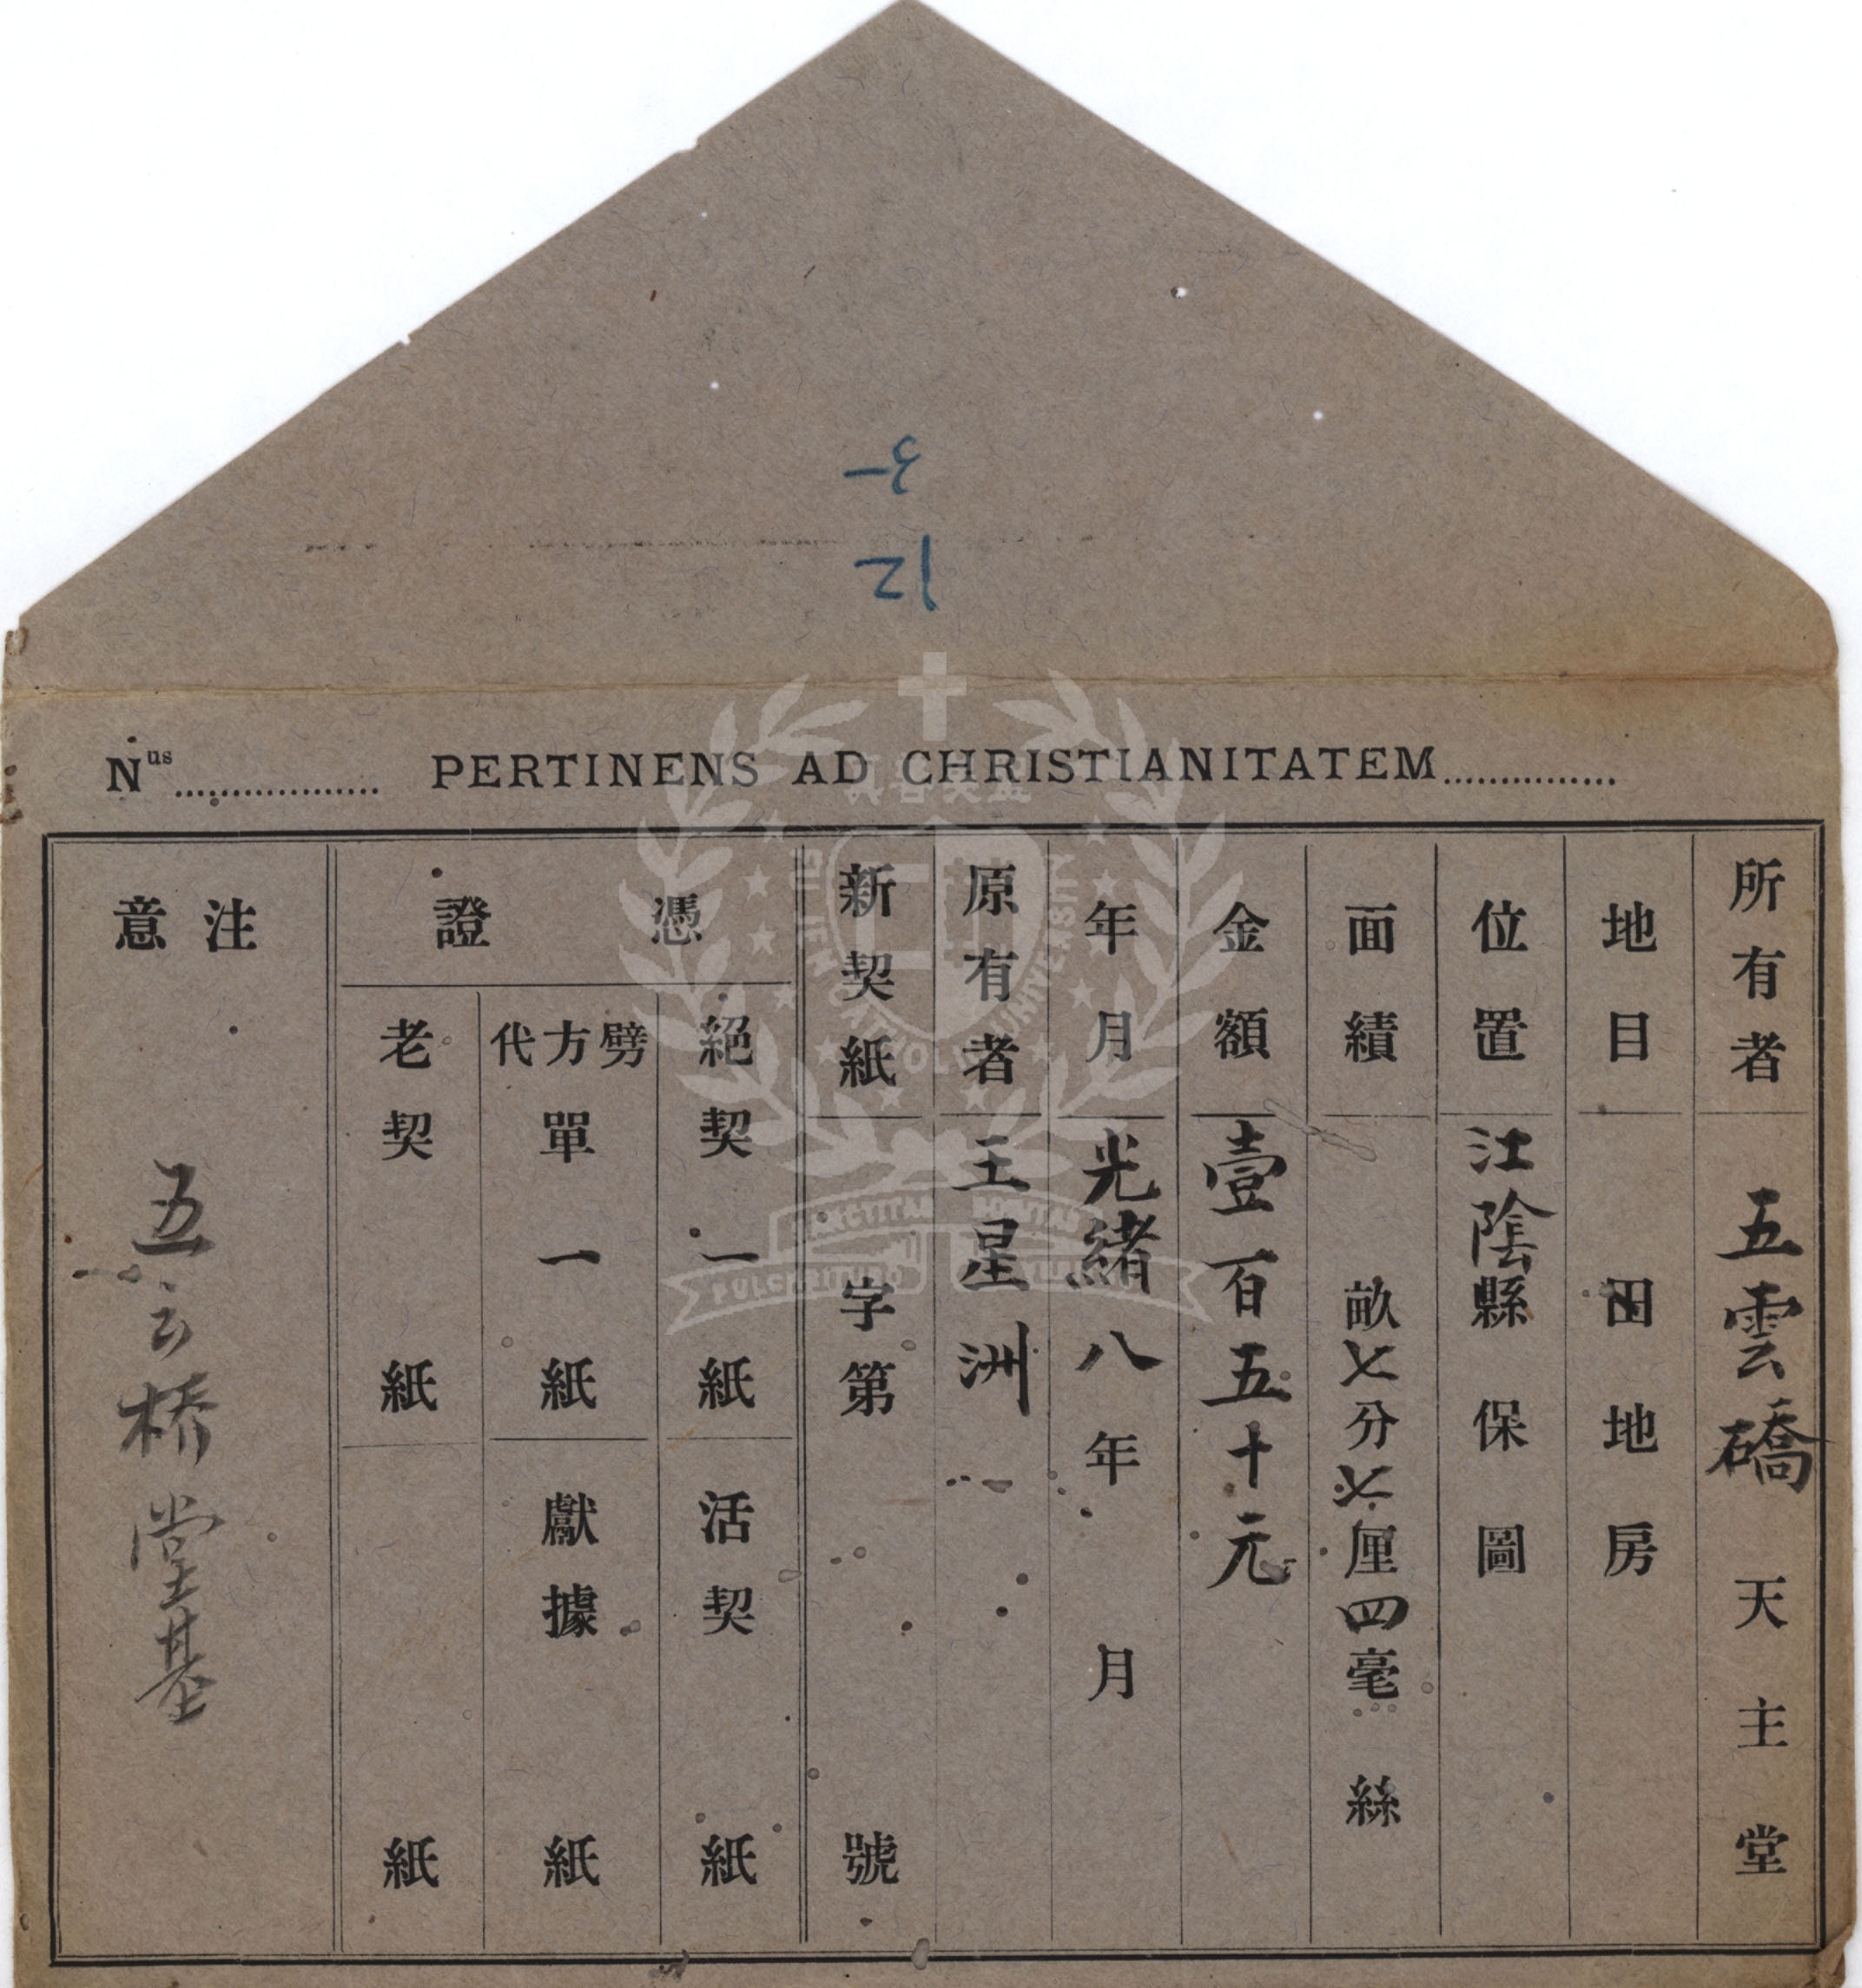 3-
12
Nus.................. PERTINENS AD CHRISTIANITATEM...............
所有者 五雲礄天主堂
地目 田地房
位置 江陰縣保圖
面績 畝七分七厘四毫絲
金額 壹百五十元
年月 光緒八年月
原有者 王星洲
新契紙 字第號
憑證
絕契一紙 活契紙
劈方代單一紙 獻據紙
老契紙 紙
注意
五云桥堂基